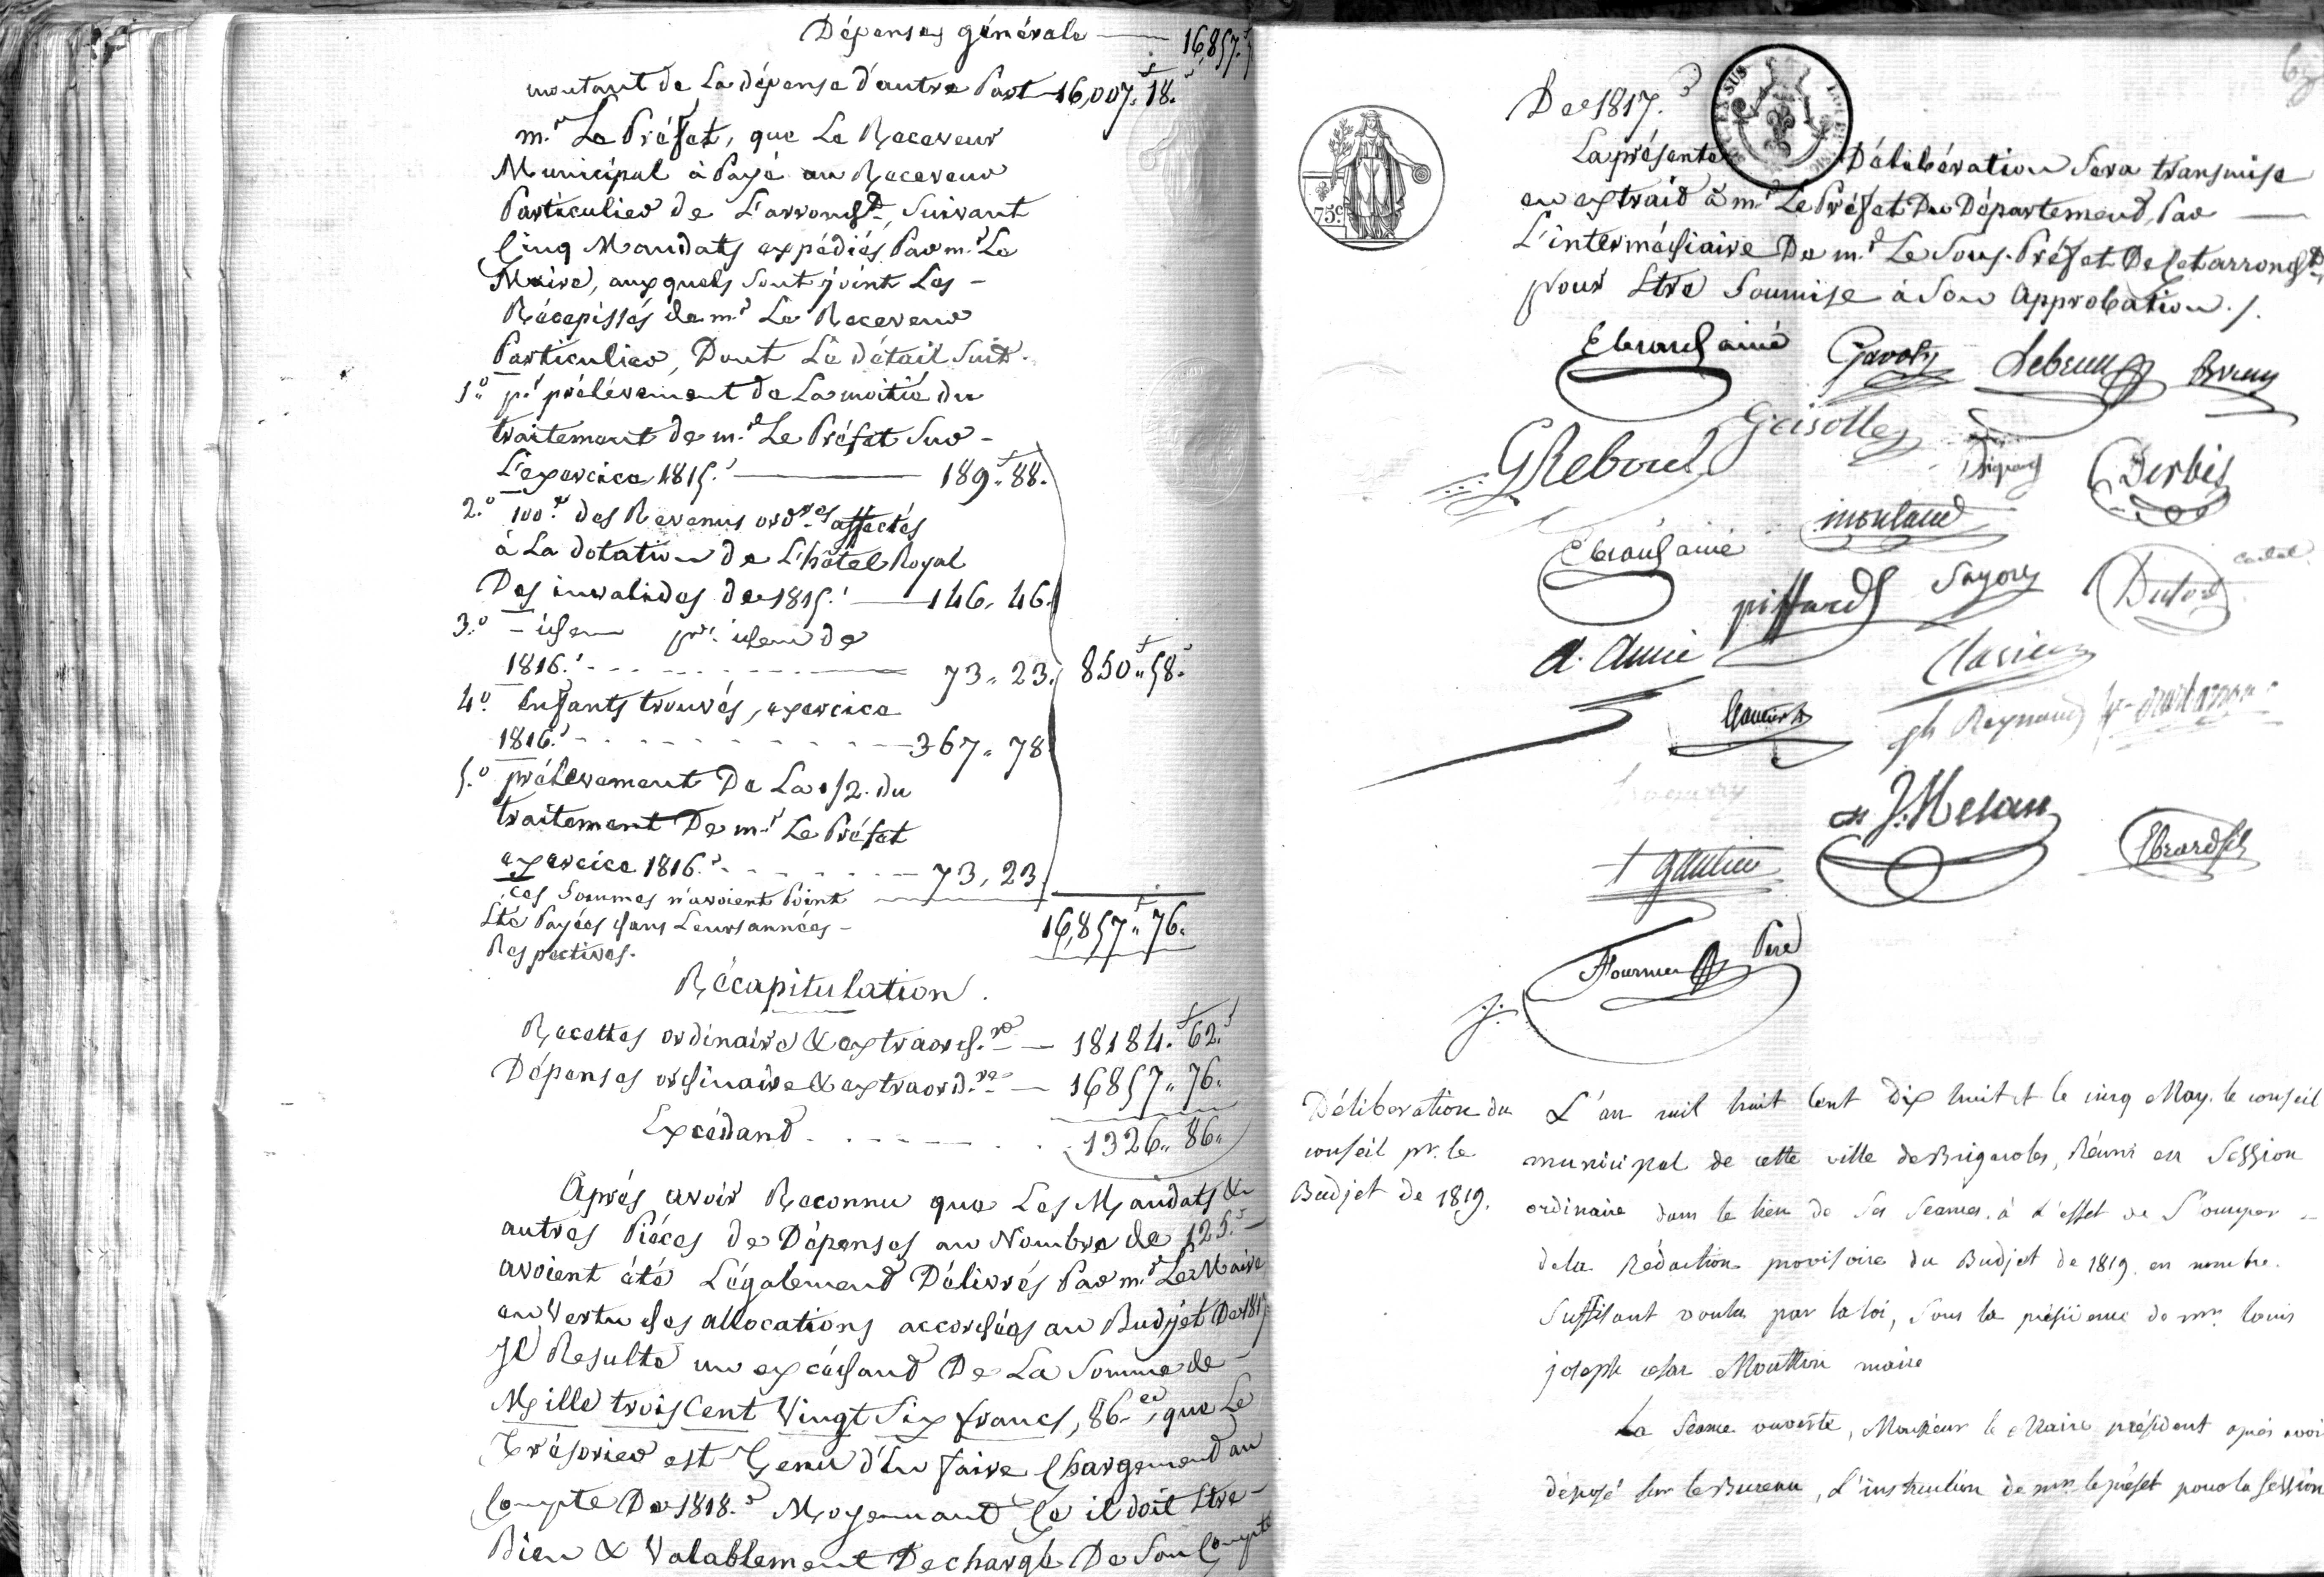 Dépenses générale — 16,857.f
montant de La dépense d'autre Part 16,007.f 18.
m.r Le Préfet, que Le Receveur
Municipal à Payé au Receveur
Particulier de L'arrond.t, Suivant
Cinq Mandats expédiés Par m.r Le
Maire, auxquels Sont joint Les -
Récépissés de m.r Le Receveur
Particulier, Dont Le détail Suit.
1.o p.r prélèvement de La moitié du
traitement de m.r Le Préfet Sur -
L'exercice 1815. — 189.f 88.
2.o 100.e des Revenus ord.res affectés
à La dotation de L'hôtel Royal
Des invalides de 1815. — 146. 46.
3.o - idem pr. idem de
1816. - - - 73. 23. 850.f 58.
4.o Enfants trouvés, exercice
1816. - - - 367. 78
5.o prélèvement De La 1/2 du
traitement De m.r Le Préfet
exercice 1816. - - - 73, 23.
Ces Sommes n'avoient Point
Eté Payées dans Leurs années -
Respectives.
16,857.f 76.
Récapitulation.
Recettes ordinaire & extraord.re — 18184.f 62.
Dépenses ordinaire & extraord.re — 16857. 76.
Excédand - - - 1326. 86.
Après avoir Reconnu que Les Mandats &
autres Piéces de Dépenses au Nombre de 125. -
avoient été Légalement Délivrés Par m.r Le Maire
en Vertu des allocations accordées au Budjet De 1817
Il Resulte un excédand De La Somme de -
Mille trois Cent Vingt Six francs, 86.ce, que Le
Trésorier est Tenu d'En faire Chargement au
Compte De 1818. Moyennant Ce il doit Etre -
Bien & Valablement Dechargé De Son Compte
De 1817.
75c
La présente Délibération Sera transmise
en extrait à m.r Le Préfet Du Département, Par —
L'intermédiaire De m.r Le Sous-Préfet De Cet arrond.t
pour Etre Soumise à Son Approbation./.
Ebrard ainé Gavoty Lebrun Brun
G Reboul Grisolles Derbès
Ebrard ainé moutaud
piffard Dutord
A. Amic
gh Raynaud
J. Melan
gautier Ebrard fils
Fournier Pere
Déliberation du
conseil pr. le
Budjet de 1819.
L'an mil huit Cent Dix huit et le cinq May. le conseil
municipal de cette ville de Brignoles, Réuni en Session
ordinaire dans le lieu de Ses Séances, à L'effet de S'occuper -
de la Rédaction provisoire du Budjet de 1819 en nombre
Suffisant voulu par la loi, Sous la présidence de mr. louis
joseph cesar Moutton maire
La Séance ouverte, Monsieur le Maire président après avoir
déposé Sur le Bureau, L'instruction de mr. le préfet pour la Session